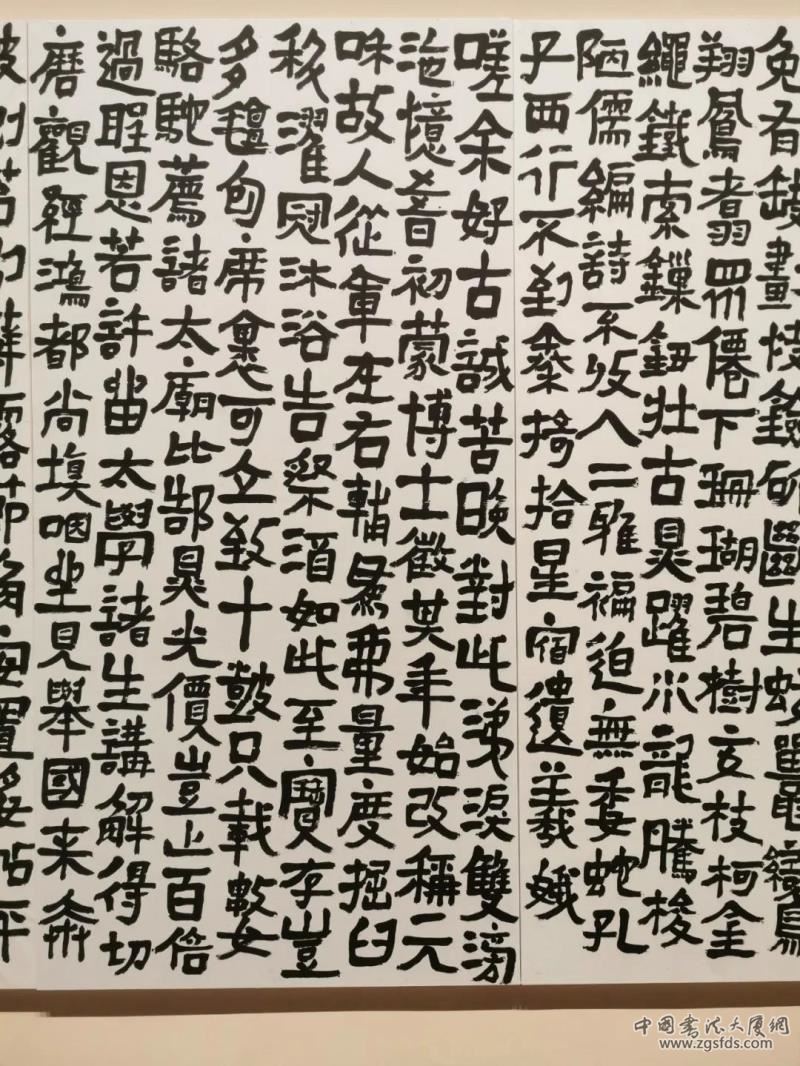 免有缺畫快劍斫斷生蛟鼉鸞
翔鳳翥眾僊下珊瑚碧樹交枝柯金
繩鐵索鏁鈕壯古鼎躍水龍騰梭
陋儒編詩不收入二雅褊迫無委蛇孔
子西行不到秦掎拾星宿遺羲娥
嗟余好古誠苦晚對此涕淚雙滂
沱憶昔初蒙博士徵其年始改稱元
咊故人從軍在右輔為我量度掘臼
科濯冠沐浴告祭酒如此至寶存豈
多氈包席裹可立致十鼓只載數
駱駝薦諸太廟比郜鼎光價豈止百倍
過聖恩若許留太學諸生講解得切
磨觀經鴻都尚填咽坐見舉國来奔
波剜苔剔蘚露節角安置妥帖平
中國書法大廈網
www.zgsfds.com